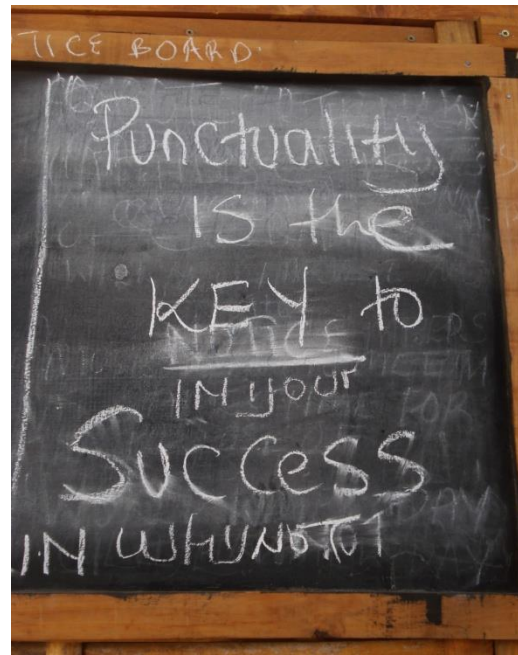 TICE BOARD.
Punctuality
IS the
KEY to
NOTICE
IN your
Success
IN WHYNOT